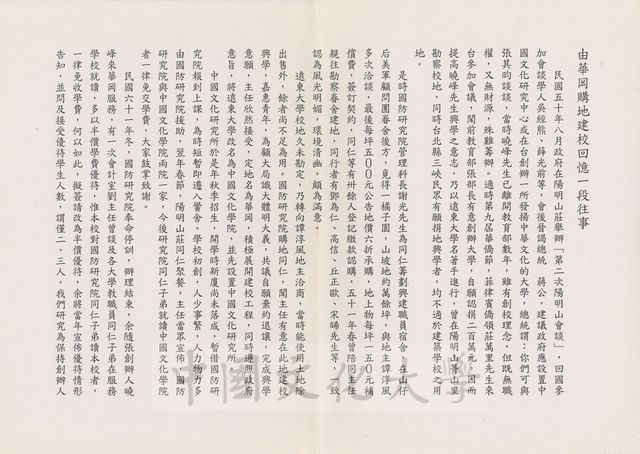 由華岡購地建校回憶一段往事
民國五十年八月政府在陽明山莊舉辦「第二次陽明山會談」，回國參
加會談學人吳經熊、薛光前等，會後晉謁總統　蔣公，建議政府應設置中
國文化研究中心或在台創辦一所發揚中華文化的大學，總統謂：你們可與
張其昀談談，當時曉峰先生已離開教育部數年，雖有創校理念，但既無職
權，又無財源，殊難籌辦。適時第九屆華僑節，菲律賓僑領莊萬里先生來
台參加會議，聞前教育部張部長有意創辦大學，自願認捐二百萬元，因而
提高曉峰先生興學之意志，乃以遠東大學名著手進行，曾在陽明山菁山里
勘察校地，同時台北縣三峽民眾有願捐地興學者，均不適於建築學校之用
地。
是時國防研究院管理科長謝元先生為同仁籌劃興建職員宿舍，在山仔
后美軍顧問團眷舍後方，覓得一橘子園，山坡地約萬餘坪，與地主譚淳風
多次洽談，最後每坪五00元公告地價六折承購，地上物每坪一五0元補
償費，簽訂契約，同仁等有卅餘人登記繳款認購，五十一年春曾陪同主任
親往勘察眷舍建地，同行者有鄧為仁、高信、丘正歐、宋晞先生等，一致
認為風光明媚，環境清幽，頗為滿意。
遠東大學校地久未勘定，乃轉向譚淳風地主洽商，當時能使用土地除
出售外，餘者尚不足為用。國防研究院購地同仁，聞主任有意在此地建校
興學，嘉惠青年，為顧大局識大體明大義，共議自願棄約退讓，完成興學
意願，主任欣然接受，定地名為華岡，積極展開建校工程，同時遵照政府
意旨，將遠東大學改名為中國文化學院，並先設置中國文化研究所
中國文化研究所於是年秋季招生，開學時新廈尚未落成，暫借國防研
究院報到上課，為時短暫即遷入黌舍。學校初創，人少事繁，人力物力多
由國防研究院援助，翌年春節，陽明山莊同仁聚餐，主任當眾宣佈「國防
研究院與中國文化學院兩院一家，今後研究院同仁子弟就讀中國文化學院
者一律免交學費，大家鼓掌致謝。
民國六十一年冬，國防研究院奉命停訓，辦理結束，余隨張創辦人曉
峰來華岡服務，有一次會計室劉主任曾談及各大學教職員同仁子弟在服務
學校就讀，多以半價學費優待，惟本校對國防研究院同仁子弟讀本校者，
一律免收學費，何以如此，擬簽請改為半價優待，余將當年宣佈優待情形
告知，並問及接受優待學生人數，謂僅二、三人，我們研究為保持創辦人
中國文化大學